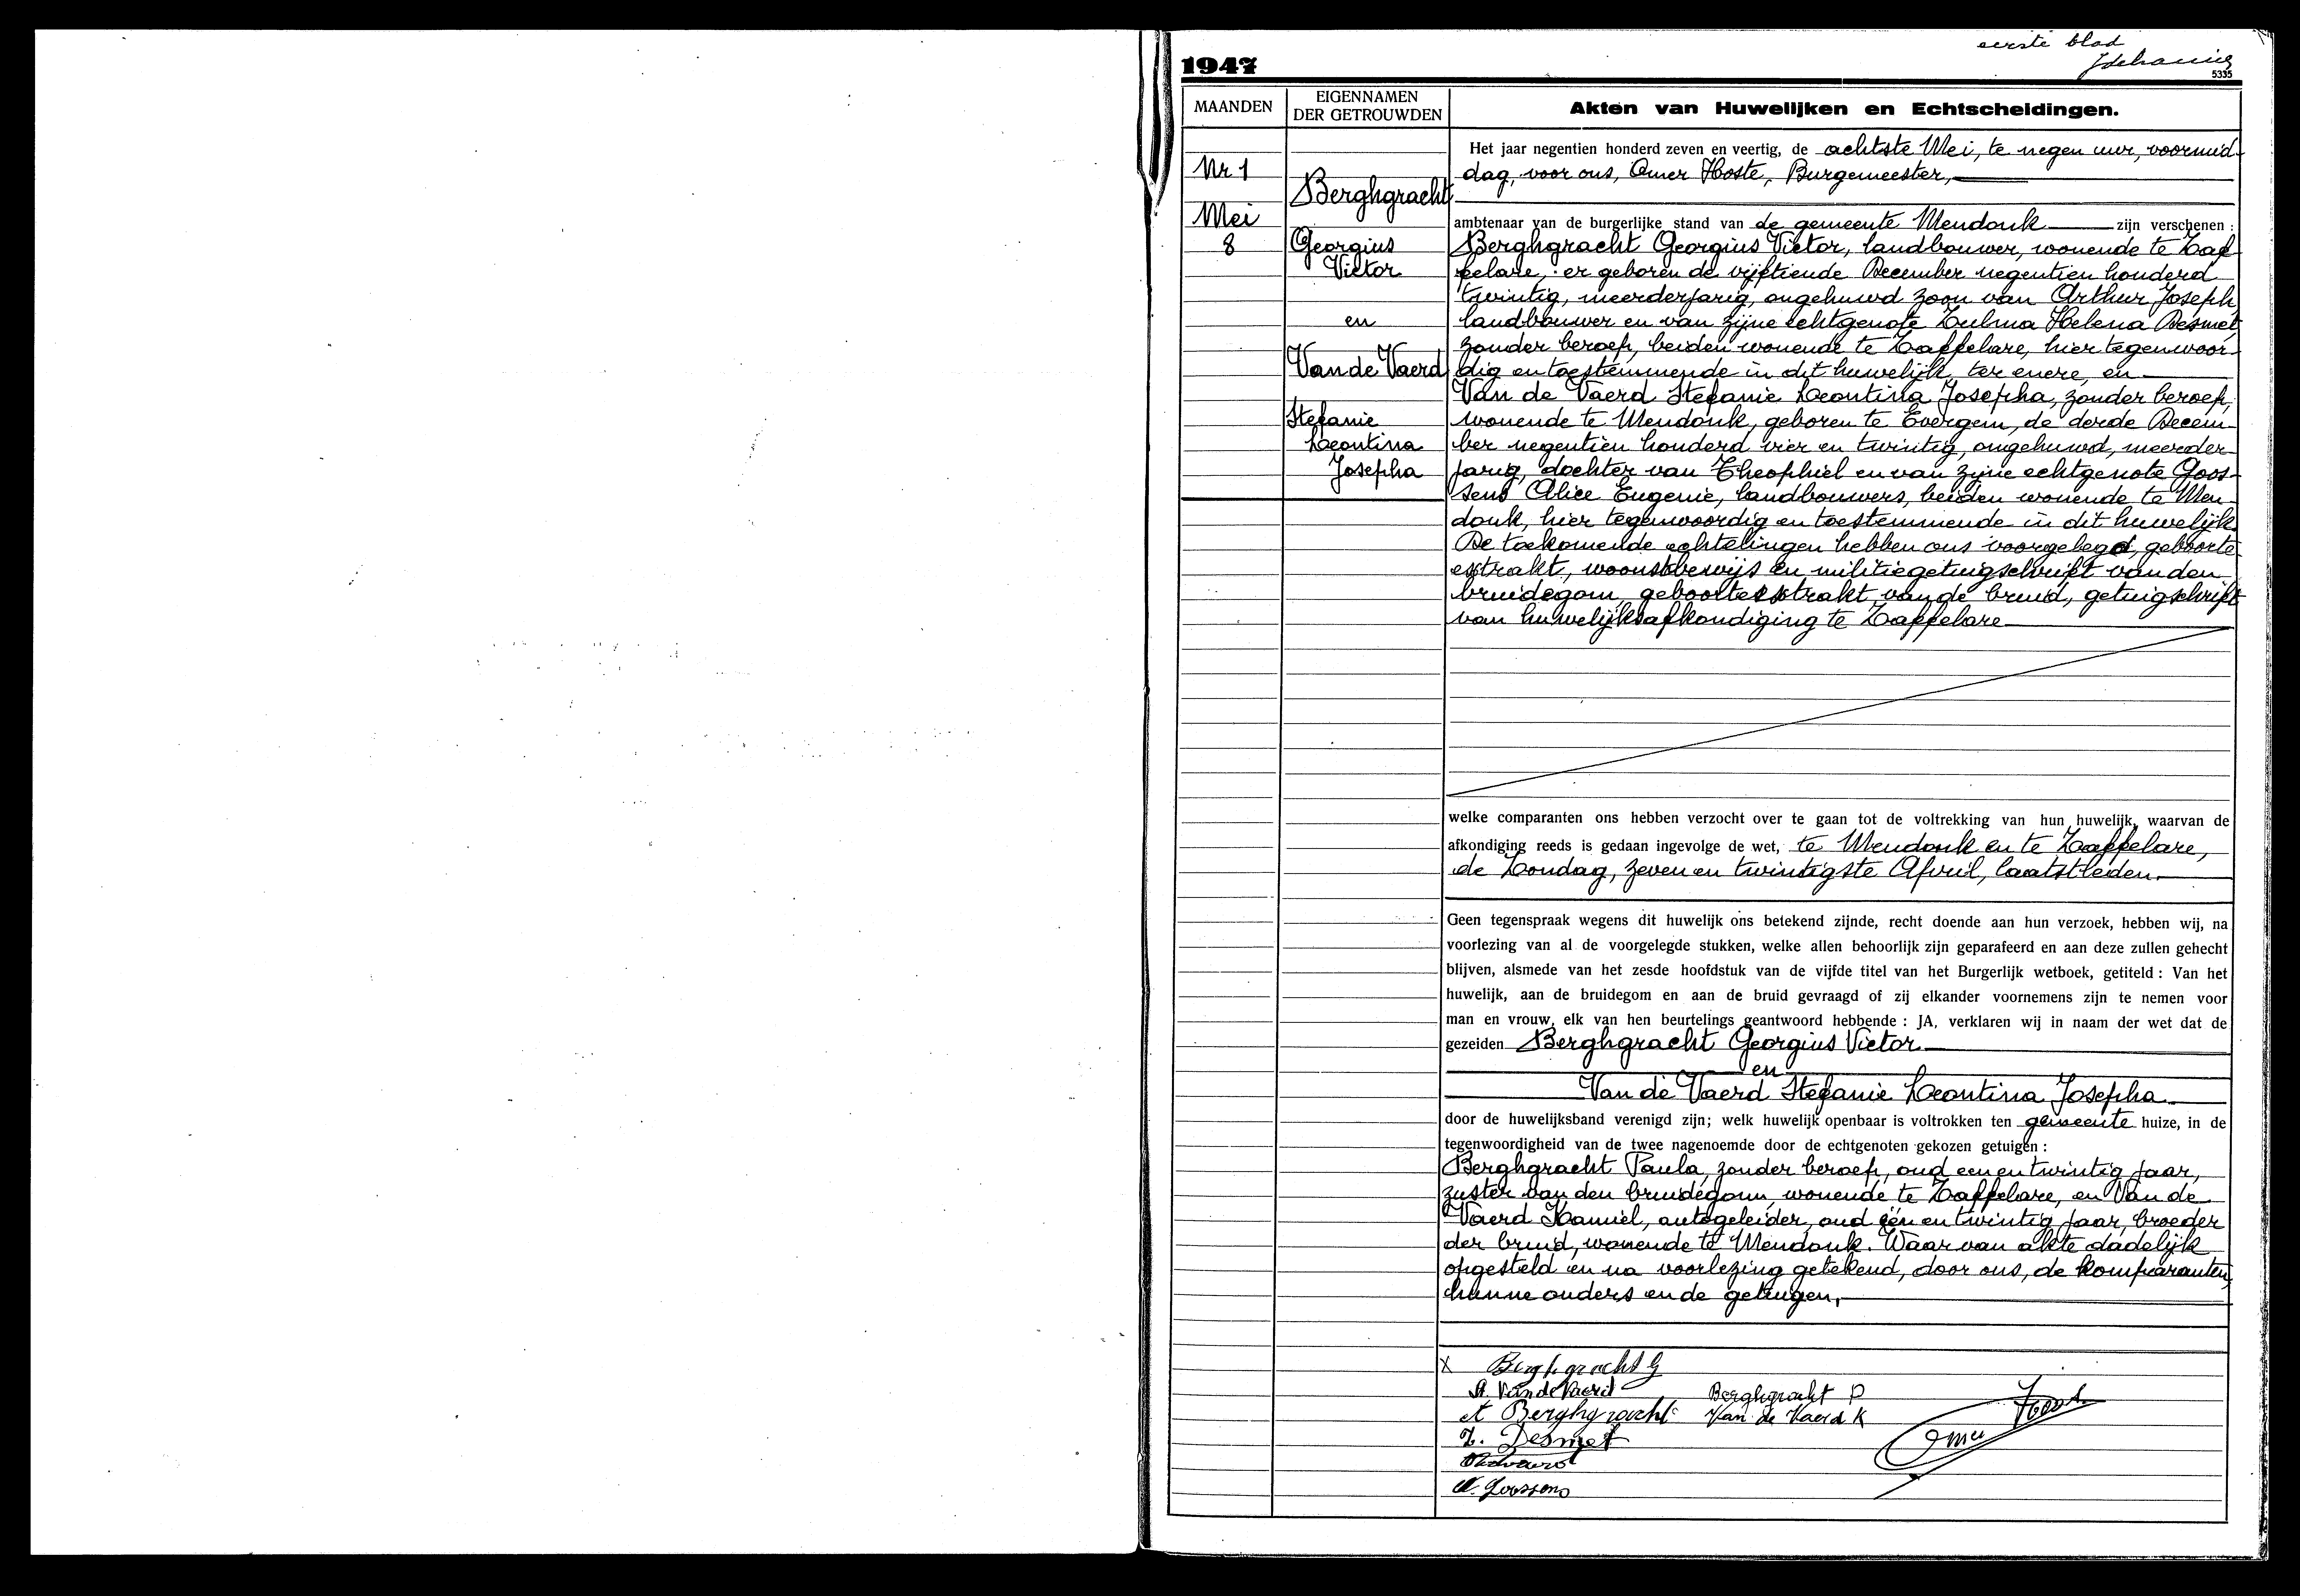 eerste blad
1947
5335
MAANDEN
EIGENNAMEN
DER GETROUWDEN
Akten van Huwelijken en Echtscheidingen.
Nr 1
Mei
8
Berghgracht
Georgius
Victor
en
Van de Vaerd
Stefanie
Leontina
Josepha
Het jaar negentien honderd zeven en veertig, de achtste Mei, te negen uur, voormid-
dag, voor ons, Omer Hoste, Burgemeester,
ambtenaar van de burgerlijke stand van de gemeente Mendonk zijn verschenen :
Berghgracht Georgius Victor, landbouwer, wonende te Zaf
felare, er geboren de vijftiende December negentien honderd
twintig, meerderjarig, ongehuwd zoon van Arthur Joseph
landbouwer en van zijne echtgenote Zulma Helena Desmet,
zonder beroep, beiden wonende te Zaffelare, hier tegenwoor-
dig en toestemmende in dit huwelijk, ter enere, en
Van de Vaerd Stefanie Leontina Josepha, zonder beroep,
wonende te Mendonk, geboren te Evergem, de derde Decem-
ber negentien honderd vier en twintig, ongehuwd, meerder-
jarig, dochter van Theophiel en van zijne echtgenote Goos-
sens Alice Eugenie, landbouwers, beiden wonende te Men-
donk, hier tegenwoordig en toestemmende in dit huwelijk.
De toekomende echtelingen hebben ons voorgelegd, geboorte
extrakt, woonstbewijs en militiegetuigschrift van den
bruidegom, geboortextrakt van de bruid, getuigschrift
van huwelijksafkondiging te Zaffelare
welke comparanten ons hebben verzocht over te gaan tot de voltrekking van hun huwelijk, waarvan de
afkondiging reeds is gedaan ingevolge de wet, te Mendonk en te Zaffelare,
de Zondag, zeven en twintigste April, laatstleden.
Geen tegenspraak wegens dit huwelijk ons betekend zijnde, recht doende aan hun verzoek, hebben wij, na
voorlezing van al de voorgelegde stukken, welke allen behoorlijk zijn geparafeerd en aan deze zullen gehecht
blijven, alsmede van het zesde hoofdstuk van de vijfde titel van het Burgerlijk wetboek, getiteld : Van het
huwelijk, aan de bruidegom en aan de bruid gevraagd of zij elkander voornemens zijn te nemen voor
man en vrouw, elk van hen beurtelings geantwoord hebbende : JA, verklaren wij in naam der wet dat de
gezeiden Berghgracht Georgius Victor
en
Van de Vaerd Stefanie Leontina Josepha
door de huwelijksband verenigd zijn; welk huwelijk openbaar is voltrokken ten gemeente huize, in de
tegenwoordigheid van de twee nagenoemde door de echtgenoten gekozen getuigen :
Berghgracht Paula, zonder beroep, oud een en twintig jaar,
zuster van den bruidegom, wonende te Zaffelare, en Van de
Vaerd Kamiel, autogeleider, oud één en twintig jaar, broeder
der bruid, wonende te Mendonk. Waar van akte dadelijk
opgesteld en na voorlezing getekend, door ons, de komparanten,
hunne ouders en de getuigen.
x Berghgracht G
St. Van de Vaerd Berghgracht P
A Berghgracht Van de Vaerd K
Z. Desmet
Omer Hoste
A. Goossens